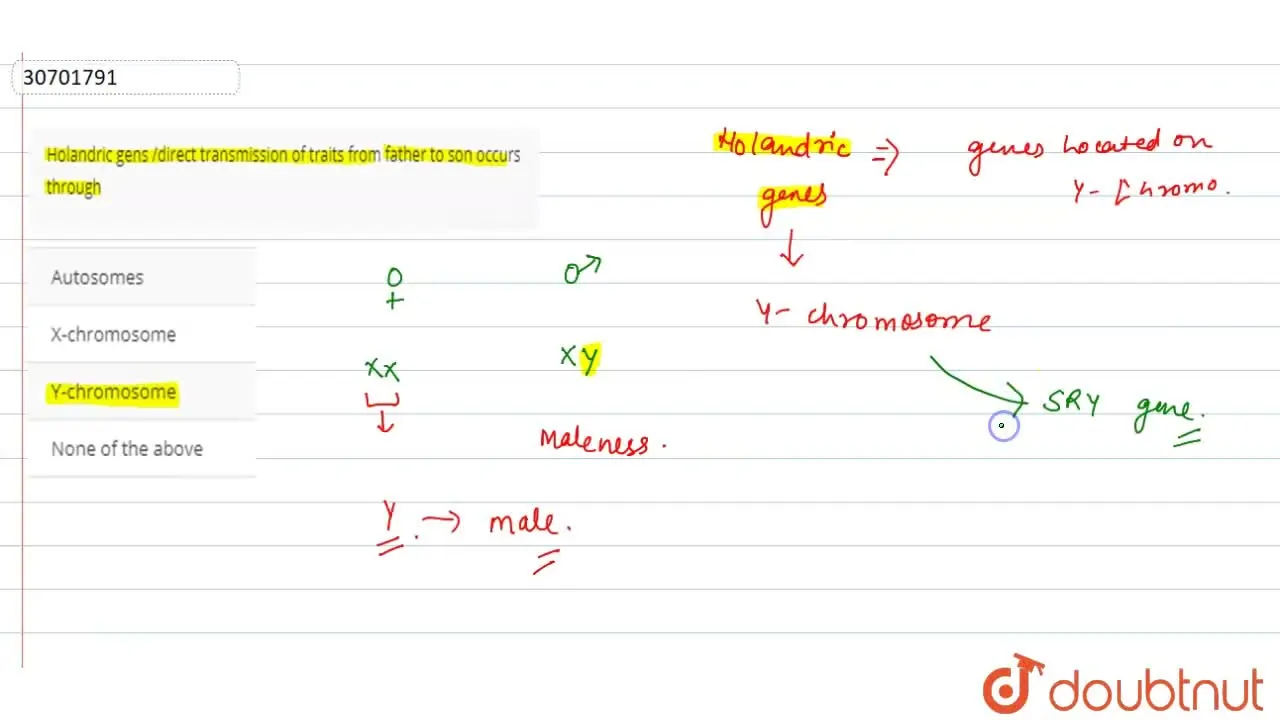 30701791
Holandric gens /direct transmission of traits from father to son occurs
through
Autosomes
X-chromosome
Y-chromosome
None of the above
Holandric ⇒ genes Located on
genes Y- Chromo.
↓
Y- chromosome
SRY gene.
♀ ♂
XX XY
Maleness.
Y → male.
doubtnut